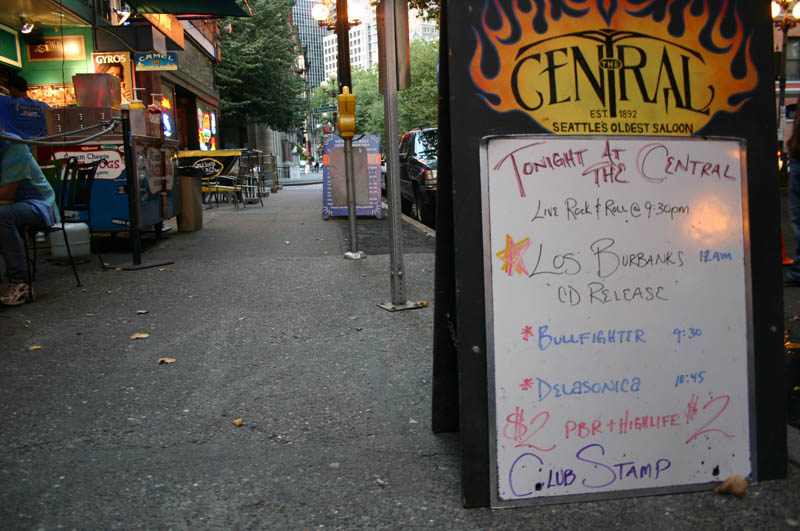 GYROS
CAMEL
Cream Cheese
THE
CENTRAL
EST. 1892
SEATTLES OLDEST SALOON
TONIGHT AT
THE CENTRAL
LIVE ROCK & ROLL @ 9:30PM
LOS BURBANKS 12AM
CD RELEASE
* BULLFIGHTER 9:30
* DELASONICA 10:45
$2 PBR + HIGHLIFE $2
CLUB STAMP